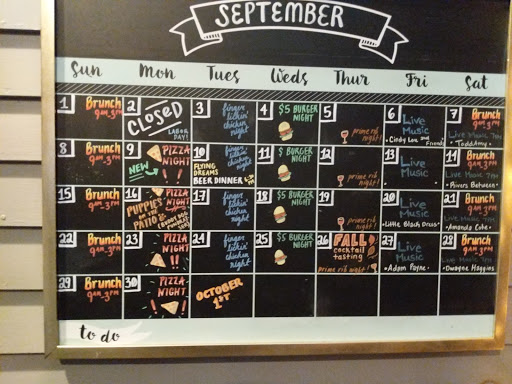 SEPTEMBER
Sun Mon Tues Weds Thur Fri Sat
1 Brunch 9am-3pm
2 CLOSED LABOR DAY!
3 finger lickin' chicken night
4 $5 BURGER NIGHT
5 prime rib night!
6 Live Music • Cindy Lou and Friends
7 Brunch 9am-3pm Live Music 7PM
8 Brunch 9am-3pm
9 NEW PIZZA NIGHT !!
10 finger lickin' chicken night FLYING DREAMS BEER DINNER
11 $5 BURGER NIGHT
12 prime rib night!
13 Live Music
14 Brunch 9am-3pm Live Music 7PM • Rivers Between •
15 Brunch 9am-3pm
16 PIZZA NIGHT !! PUPPIES ON THE PATIO &
17 finger lickin' chicken night
18 $5 BURGER NIGHT
19 prime rib night!
20 Live Music • Little Black Dress •
21 Brunch 9am-3pm Live Music 7PM • Amanda Cote •
22 Brunch 9am-3pm
23 PIZZA NIGHT !!
24 finger lickin' chicken night
25 $5 BURGER NIGHT
26 FALL cocktail tasting prime rib night!
27 Live Music • Adam Payne •
28 Brunch 9am-3pm Live Music 7PM • Dwayne Haggins •
29 Brunch 9am-3pm
30 PIZZA NIGHT !!
OCTOBER 1ST
to do